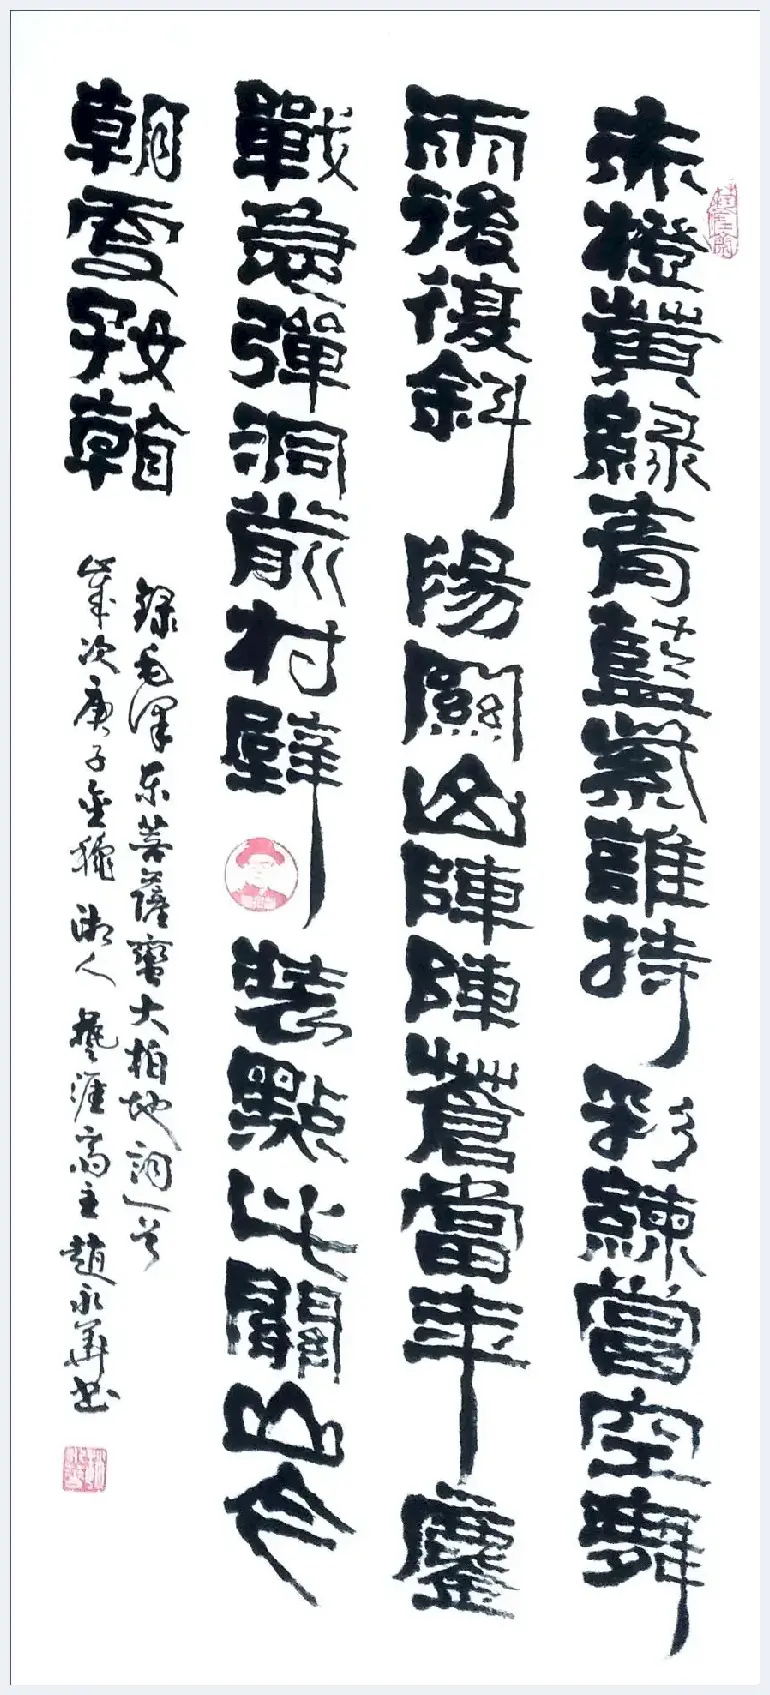 赤橙黃綠青藍紫誰持彩練當空舞
雨後復斜陽關山陣陣蒼當年鏖
戰急彈洞前村壁裝點此關山今
朝更好看
錄毛澤东菩薩蠻大柏地詞一首
歲次庚子金穐湘人藝涯齋主趙永華书